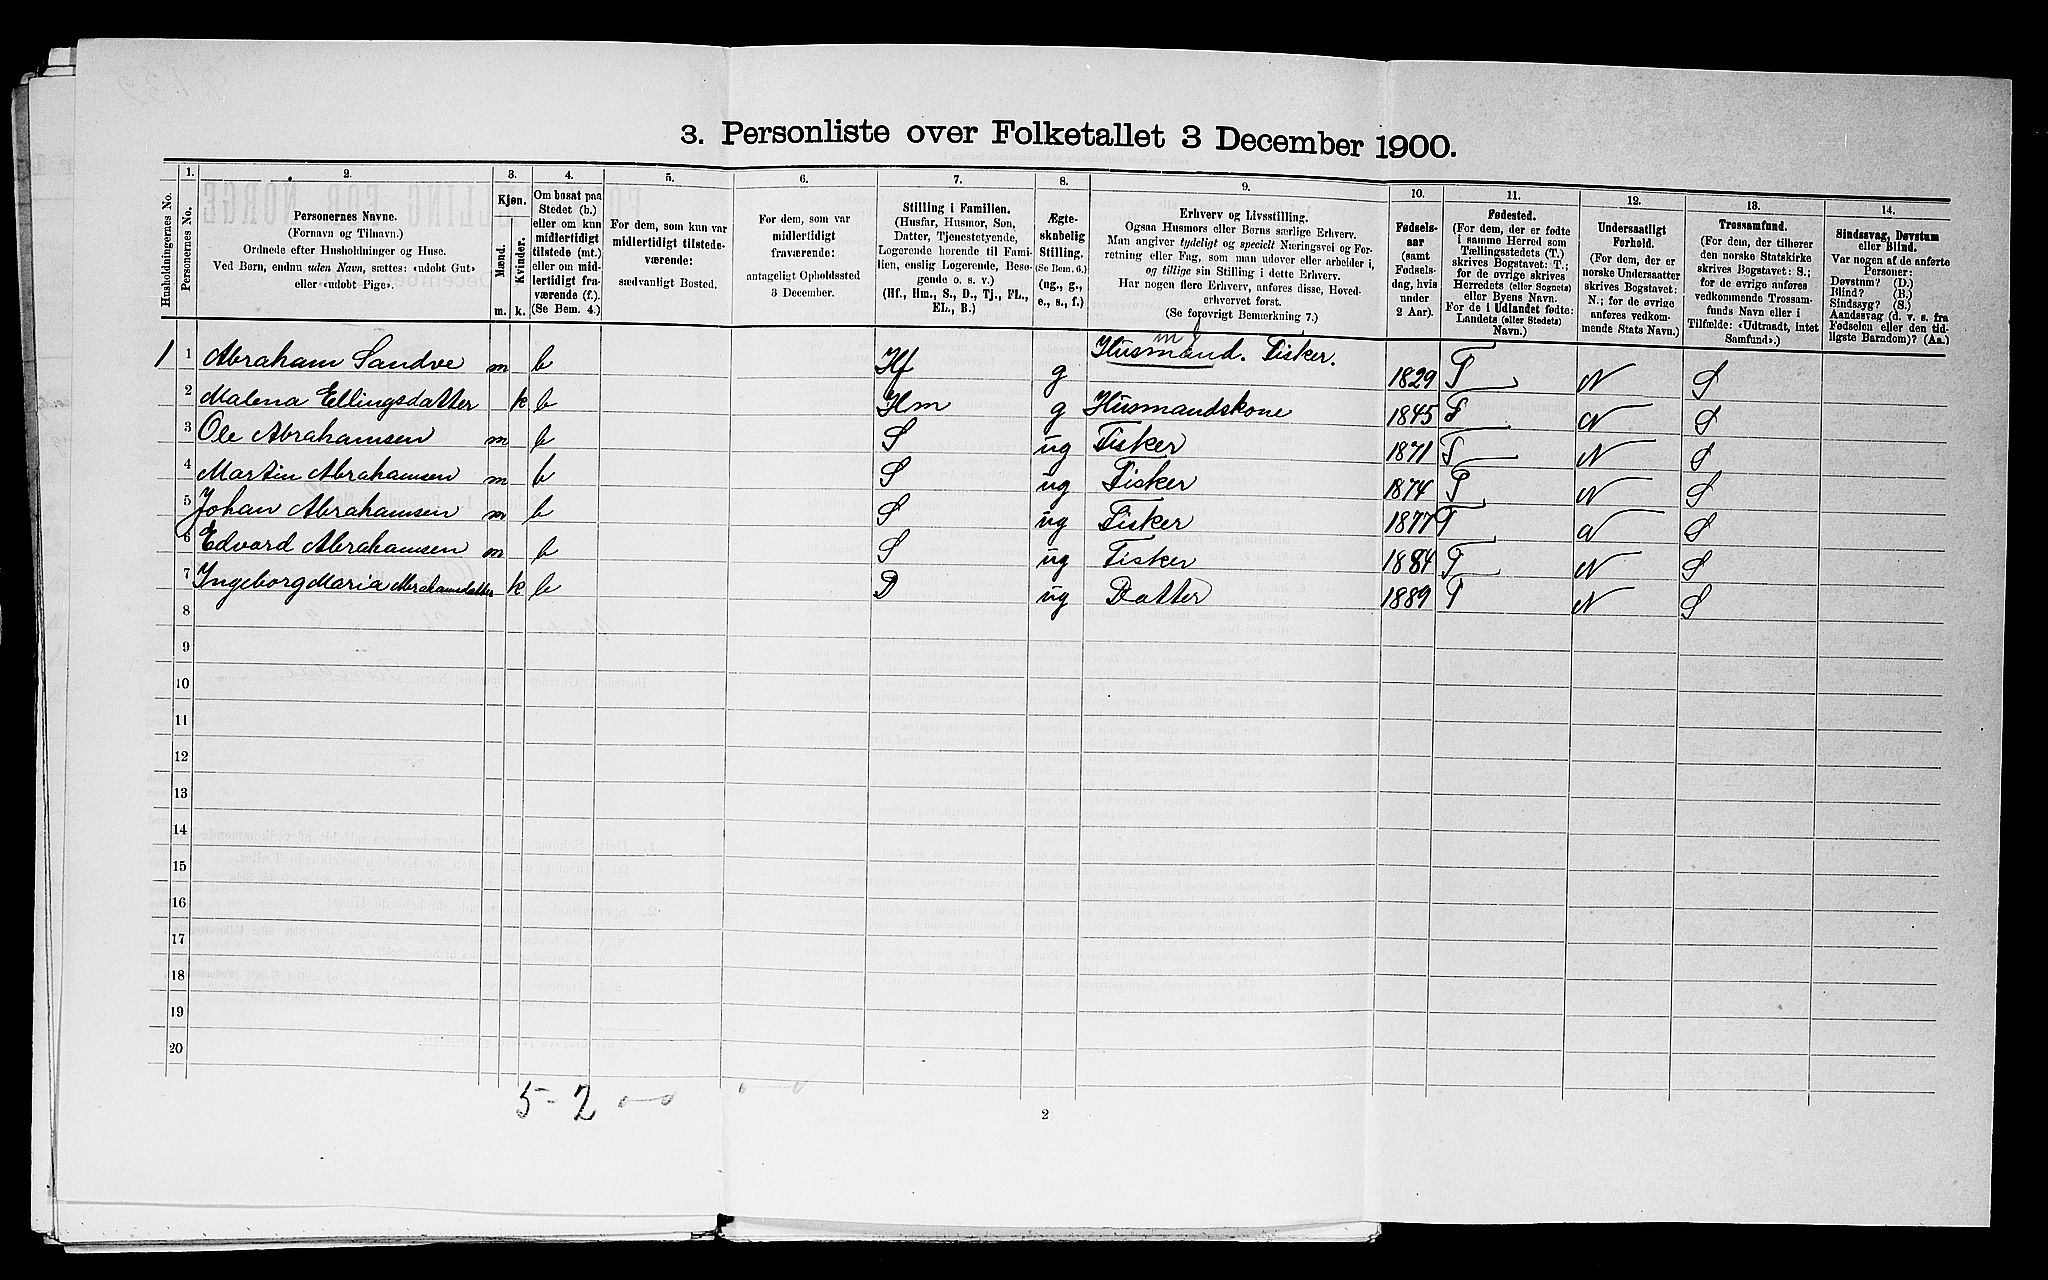 3. Personliste over Folketallet 3 December 1900.
Husholdningernes No.
1.
Personernes No.
2.
Personernes Navne.
(Fornavn og Tilnavn.)
Ordnede efter Husholdninger og Huse.
Ved Børn, endnu uden Navn, sættes: «udøbt Gut»
eller «udøbt Pige».
3.
Kjøn.
Mænd.
Kvinder.
m.
k.
4.
Om bosat paa
Stedet (b.)
eller om kun
midlertidigt
tilstede (mt.)
eller om mid-
lertidigt fra-
værende (f.).
(Se Bem. 4.)
5.
For dem, som kun var
midlertidigt tilstede-
værende:
sædvanligt Bosted.
6.
For dem, som var
midlertidigt
fraværende:
antageligt Opholdssted
3 December.
7.
Stilling i Familien.
(Husfar, Husmor, Søn,
Datter, Tjenestetyende,
Logerende hørende til Fami-
lien, enslig Logerende, Besø-
gende o. s. v.)
(Hf., Hm., S., D., Tj., FL.,
EL., B.)
8.
Ægte-
skabelig
Stilling.
(Se Bem. 6.)
(ug., g.,
e., s., f.)
9.
Erhverv og Livsstilling.
Ogsaa Husmors eller Børns særlige Erhverv.
Man angiver tydeligt og specielt Næringsvei og For-
retning eller Fag, som man udøver eller arbeider i,
og tillige sin Stilling i dette Erhverv.
Har nogen flere Erhverv, anføres disse, Hoved-
erhvervet først.
(Se forøvrigt Bemærkning 7.)
10.
Fødsels-
aar
(samt
Fødsels-
dag, hvis
under
2 Aar).
11.
Fødested.
(For dem, der er fødte
i samme Herred som
Tællingsstedets (T.)
skrives Bogstavet: T.;
for de øvrige skrives
Herredets (eller Sognets)
eller Byens Navn.
For de i Udlandet fødte:
Landets (eller Stedets)
Navn.)
12.
Undersaatligt
Forhold.
(For dem, der er
norske Undersaatter
skrives Bogstavet:
N.; for de øvrige
anføres vedkom-
mende Stats Navn.)
13.
Trossamfund.
(For dem, der tilhører
den norske Statskirke
skrives Bogstavet: S.;
for de øvrige anføres
vedkommende Trossam-
funds Navn eller i
Tilfælde: «Udtraadt, intet
Samfund».)
14.
Sindssvag, Døvstum
eller Blind.
Var nogen af de anførte
Personer:
Døvstum? (D.)
Blind? (B.)
Sindssyg? (S.)
Aandssvag (d. v. s. fra
Fødselen eller den tid-
ligste Barndom)? (Aa.)
1 1 Abraham Sandve m b Hf g Husmand. Fisker. 1829 T N S
m
2 Malena Ellingsdatter k b Hm g Husmandskone 1845 T N S
3 Ole Abrahamsen m b S ug Fisker 1871 T N S
4 Martin Abrahamsen m b S ug Fisker 1874 T N S
5 Johan Abrahamsen m b S ug Fisker 1877 T N S
6 Edvard Abrahamsen m b S ug Fisker 1884 T N S
7 Ingeborg Maria Abrahamsdatter k b D ug Datter 1889 T N S
8
9
10
11
12
13
14
15
16
17
18
19
20
5-2 0-0 0-0
2